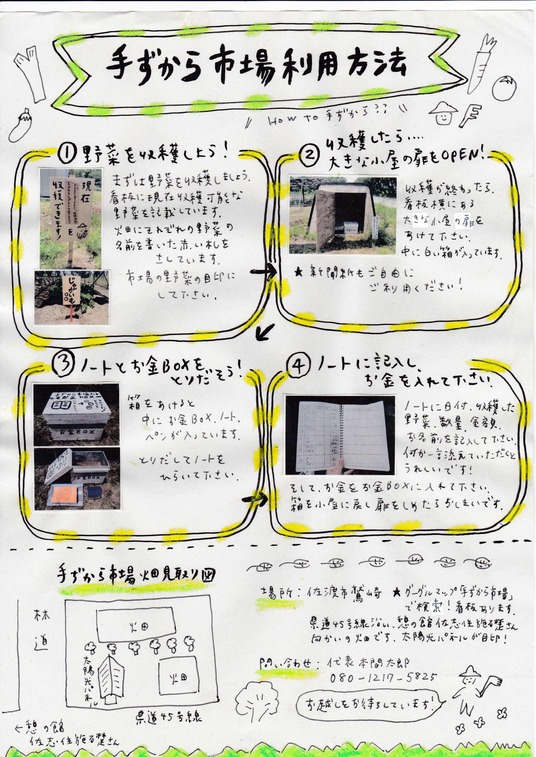 手ずから市場利用方法
How to 手ずから??
① 野菜を収穫しよう!
まずは野菜を収穫しましょう。
看板に現在収穫可能な
野菜を記載しています。
畑にそれぞれの野菜の
名前を書いた赤い札を
さしています。
市場の野菜の目印に
して下さい。
現在
を
収穫できます!
じゃがいも
② 収穫したら....
大きな小屋の扉をOPEN!
収穫が終わったら、
看板横にある
大きな小屋の扉を
あけて下さい。
中に白い箱が入っています。
★新聞紙もご自由に
ご利用ください!
③ ノートとお金BOXを
とりだそう!
箱をあけると
中にお金BOX、ノート、
ペンが入っています。
とりだしてノートを
ひらいて下さい。
お金BOX
④ ノートに記入し、
お金を入れて下さい。
ノートに日付、収穫した
野菜、数量、金額、
お名前を記入して下さい。
何か一言添えていただくと
うれしいです!
そして、お金をお金BOXに入れて下さい。
箱を小屋に戻し扉をしめたらおしまいです。
手ずから市場 畑見取り図
林道
畑
太陽光パネル
畑
県道45号線
←憩の館
佐志住施る楚さん
場所:佐渡市鷲崎
★グーグルマップ「手ずから市場」
で検索!看板あります。
県道45号線沿い、憩の館佐志住施る楚さん
向かいの畑です。太陽光パネルが目印!
問い合わせ:代表本間太郎
080-1217-5825
お越しをお待ちしています!